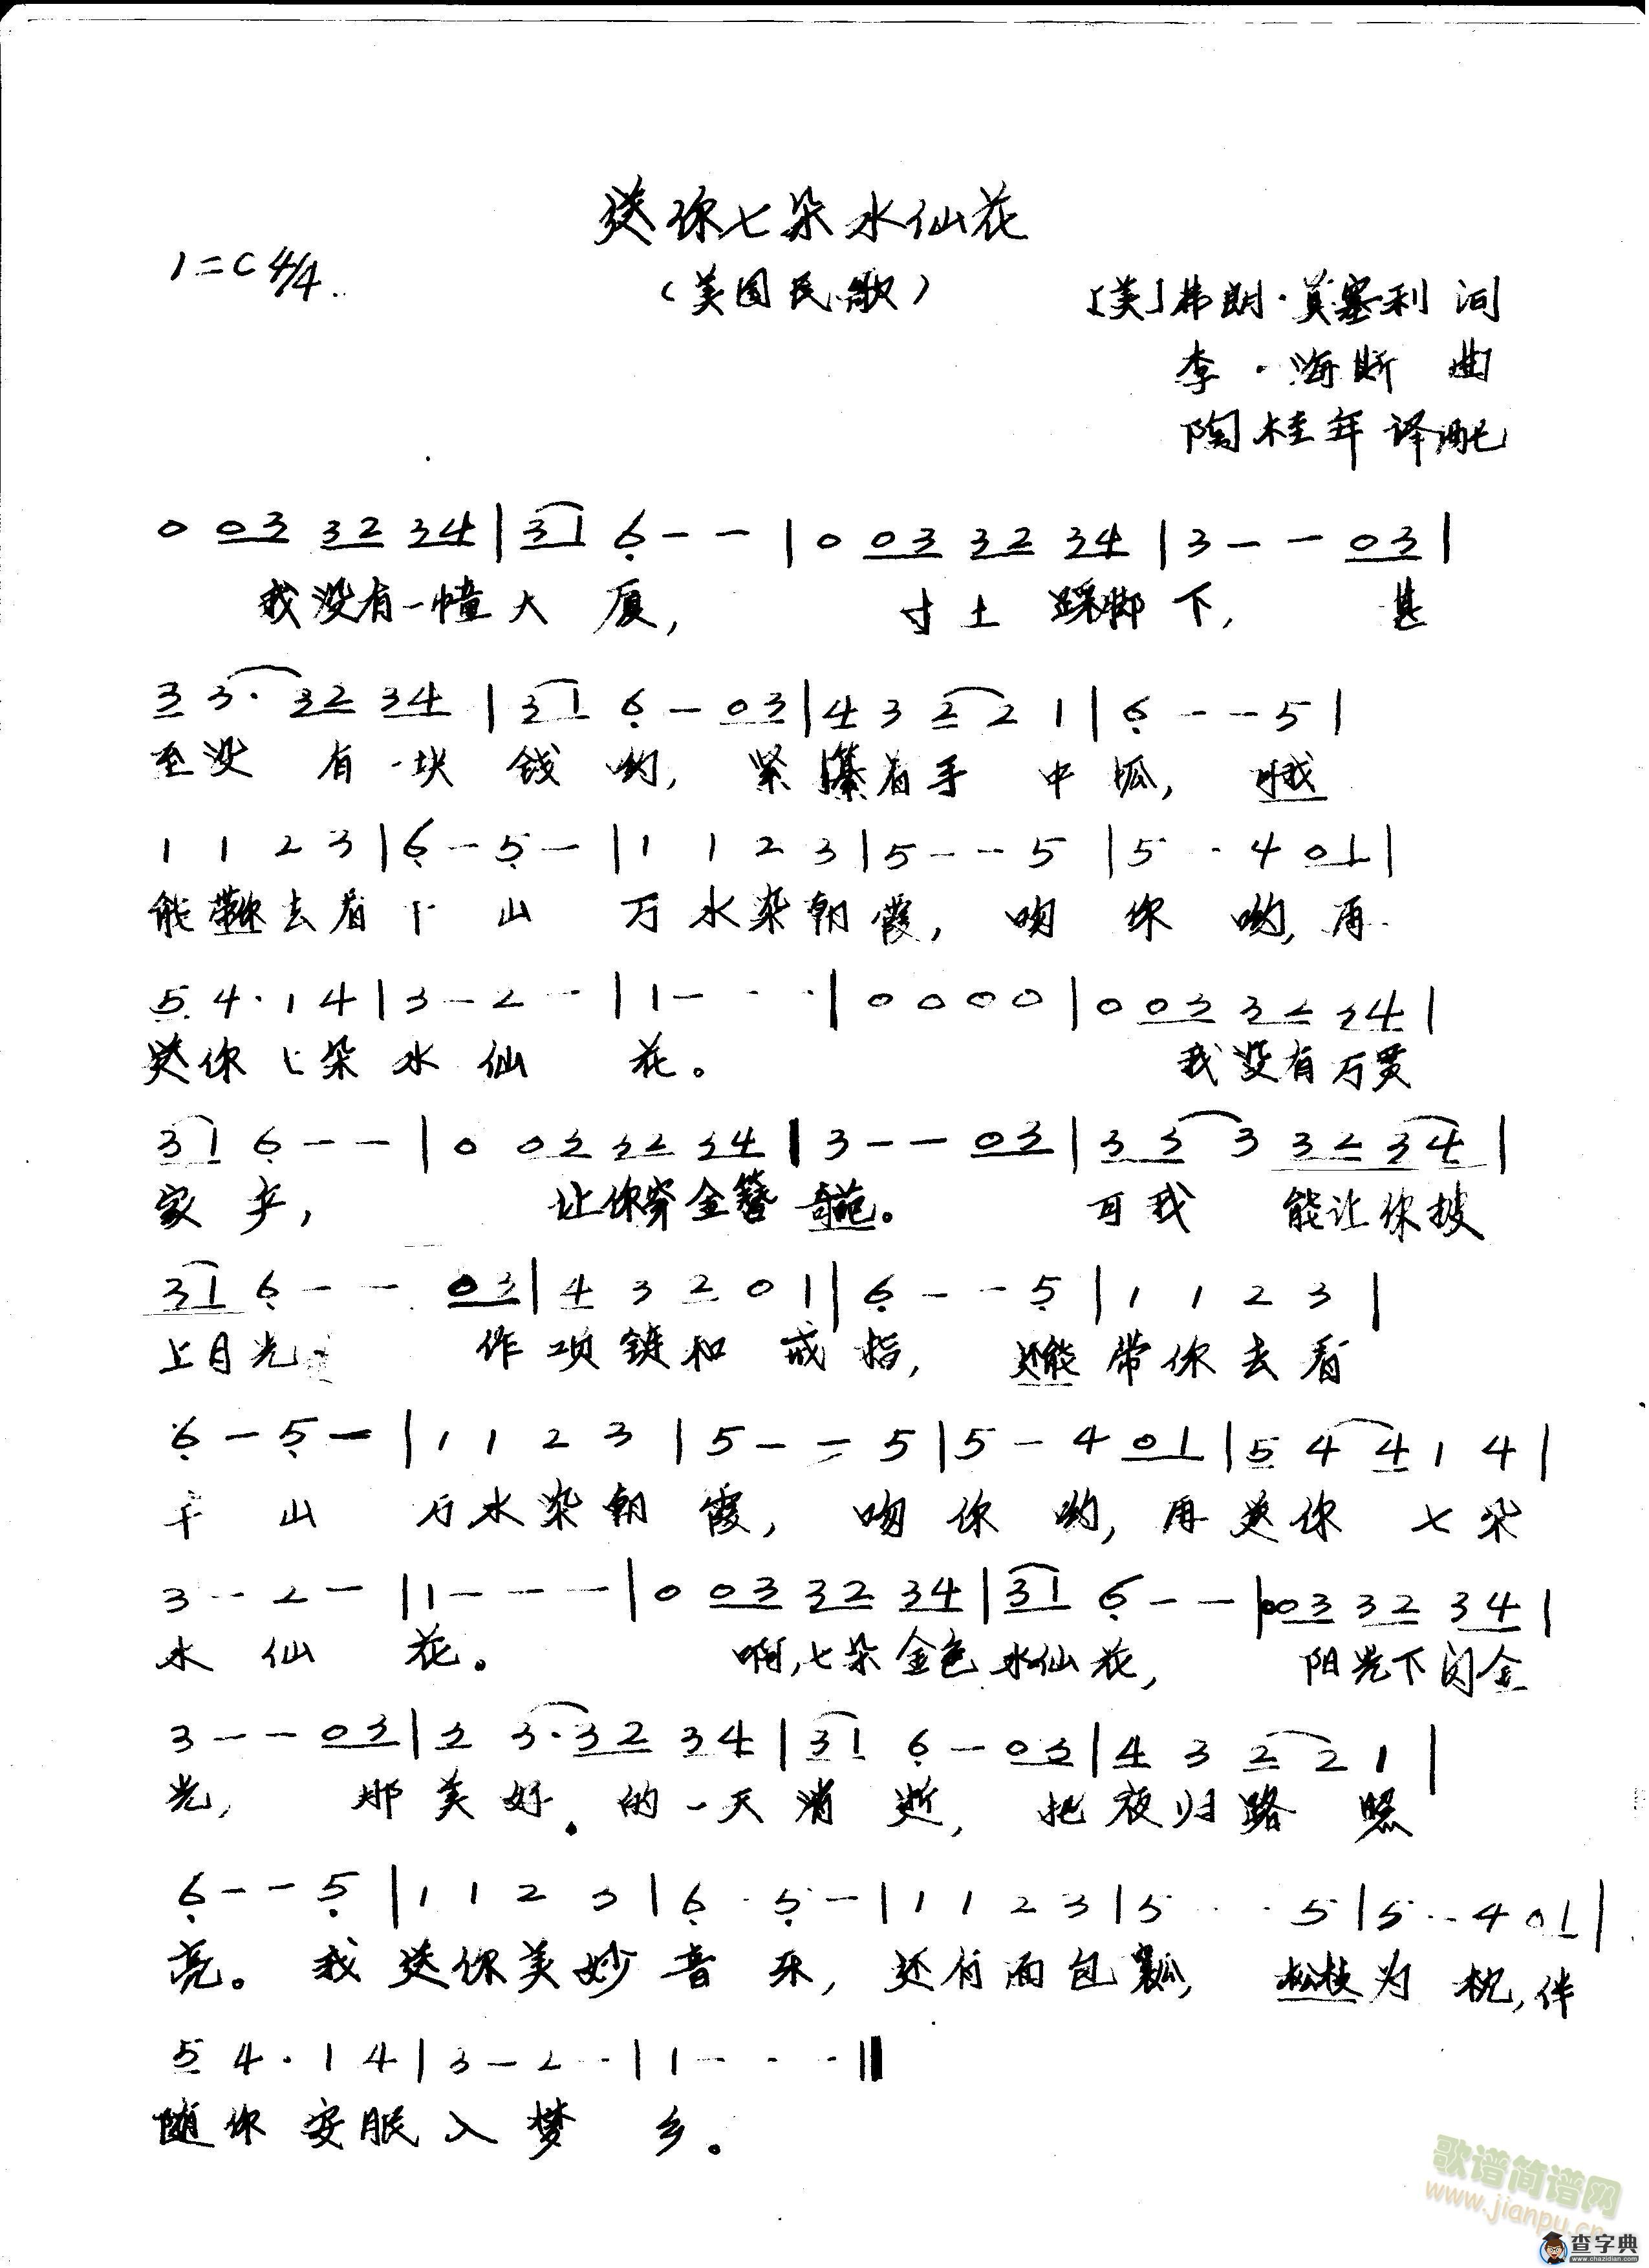 送你七朵水仙花
1=C 4/4
（美国民歌）
[美]弗朗·莫塞利 词
李·海斯 曲
陶桂年 译配
0 03 32 34 | 31 6 - - | 0 03 32 34 | 3 - - 03 |
我没有一幢大厦, 寸土踩脚下, 甚
3 3· 32 34 | 31 6 - 03 | 4 3 2 2 1 | 6 - - 5 |
至没有一块钱哟, 紧攥着手中抓, 可我
1 1 2 3 | 6 - 5 - | 1 1 2 3 | 5 - - 5 | 5 - 4 01 |
能带你去看千山万水染朝霞, 吻你哟, 再
5 4· 1 4 | 3 - 2 - | 1 - - - | 0 0 0 0 | 0 03 32 34 |
送你七朵水仙花。 我没有万贯
31 6 - - | 0 03 32 34 | 3 - - 03 | 33 3 32 34 |
家产, 让你穿金簪奇葩。 可我能让你披
31 6 - - 03 | 4 3 2 0 1 | 6 - - 5 | 1 1 2 3 |
上月光 作项链和戒指, 还能带你去看
6 - 5 - | 1 1 2 3 | 5 - - 5 | 5 - 4 01 | 5 4 4 1 4 |
千山万水染朝霞, 吻你哟, 再送你七朵
3 - 2 - | 1 - - - | 0 03 32 34 | 31 6 - - | 0 03 32 34 |
水仙花。 啊,七朵金色水仙花, 阳光下闪金
3 - - 03 | 3 3· 32 34 | 31 6 - 03 | 4 3 2 2 1 |
光, 那美好的一天消逝, 把夜归路照
6 - - 5 | 1 1 2 3 | 6 - 5 - | 1 1 2 3 | 5 - - 5 | 5 - - 4 01 |
亮。我送你美妙音乐, 还有面包瓤, 松枝为枕, 伴
5 4· 1 4 | 3 - 2 - | 1 - - - ||
随你安眠入梦乡。
歌谱简谱网
www.jianpu.cn
查字典
www.chazidian.com